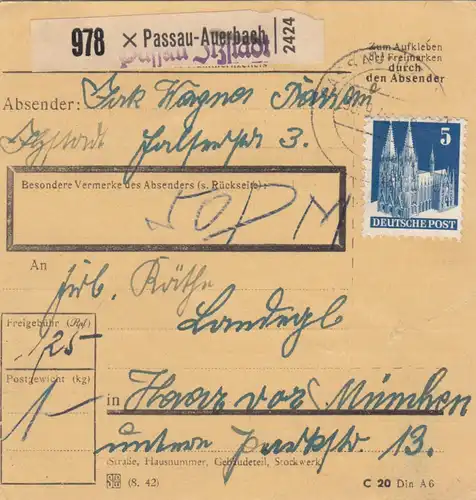 978 × Passau-Auerbach 2424
Passau Ilzstadt
Zum Aufkleben
der Freimarken
durch
den Absender
Absender: Wagner Passau
Ilzstadt 3.
5
DEUTSCHE POST
Besondere Vermerke des Absenders (s. Rückseite):
An
Frl. Käthe
Landegl
Freigebühr (Rpf)
125-
Postgewicht (kg)
1-
in Haar vor München
untere Parkstr. 13.
(Straße, Hausnummer, Gebäudeteil, Stockwerk)
(8. 42)
C 20 Din A6